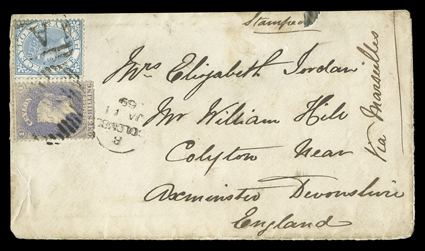 Stamped
Mrs Elizabeth Jordan
Mr William Hill
Colyton Near
Axminster Devonshire
England
Via Marseilles
CEYLON
COLOMBO
JA 11
69